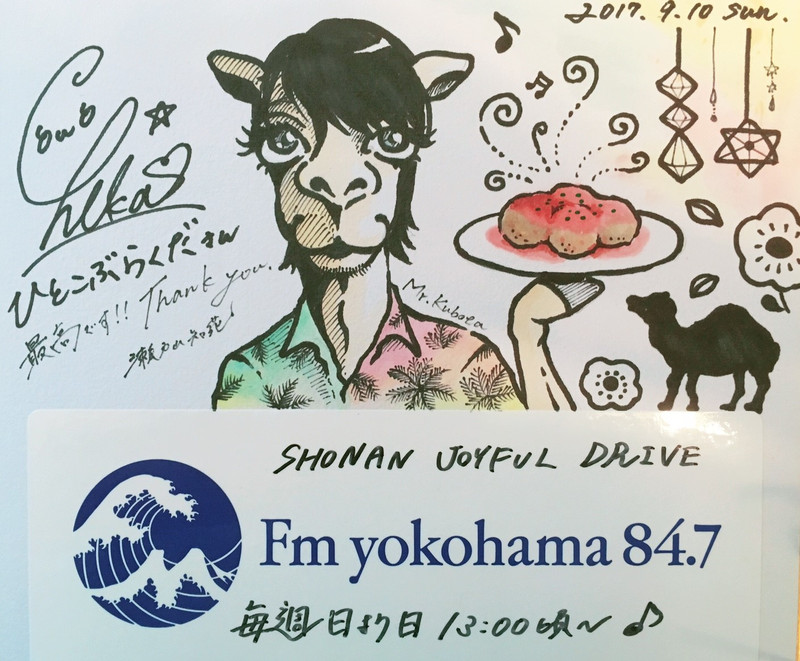 2017.9.10 sun.
Chika
ひとこぶらくださん
最高です!! Thank you.
Mr. Kubota
SHONAN JOYFUL DRIVE
Fm yokohama 84.7
毎週日よう日 13:00頃〜